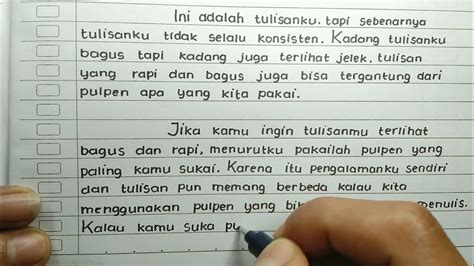 Ini adalah tulisanku. tapi sebenarnya
tulisanku tidak selalu konsisten. Kadang tulisanku
bagus tapi kadang juga terlihat jelek. tulisan
yang rapi dan bagus juga bisa tergantung dari
pulpen apa yang kita pakai.
Jika kamu ingin tulisanmu terlihat
bagus dan rapi, menurutku pakailah pulpen yang
paling kamu sukai. Karena itu pengalamanku sendiri
dan tulisan pun memang berbeda kalau kita
menggunakan pulpen yang menulis.
Kalau kamu suka pu